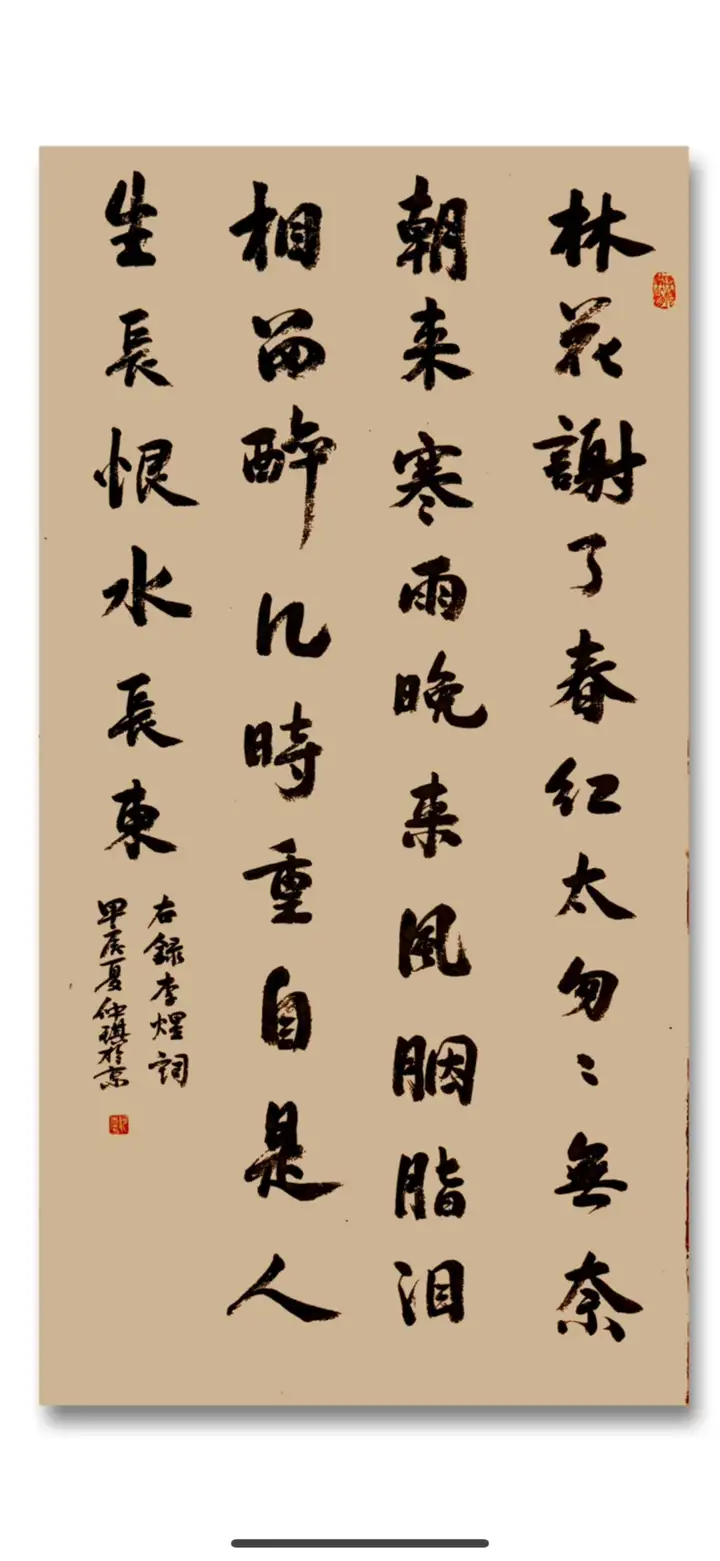 林花謝了春红太匆〻無奈
朝来寒雨晚来風胭脂泪
相留醉几時重自是人
生長恨水長東
右録李煜詞
甲辰夏仲琪於京